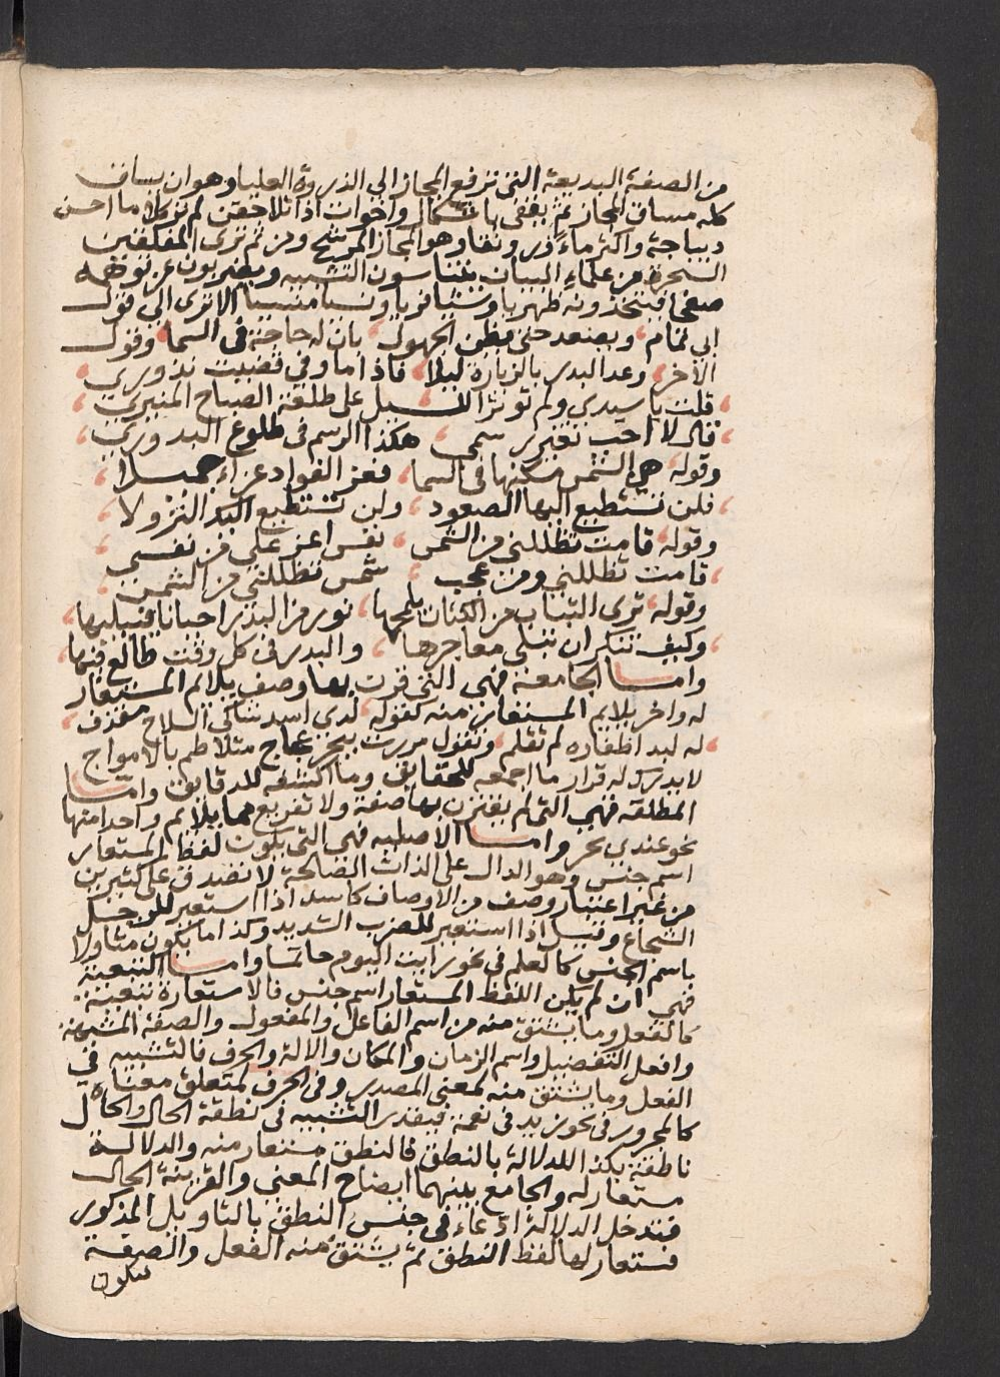 من الصفة البديعة التى ترفع المجاز الى الذروة العليا وهو ان يساق
كله مساق المجاز ثم يقفى باشكال واخوات اذا تلاحقن لم تر كلاما احسن
ديباجة واكثر ماء ورونقا وهو المجاز المرشح ومن ثم ترى المفلقين
السحرة من علماء البيان يتناسون التشبيه ويضربون عن توهمه
صفحا فيتخذونه ظهريا ونسيا منسيا الا ترى الى قول
ابى تمام ويصعد حتى يظن الجهول بان له حاجة فى السما وقول
الاخر وعد البدر بالزيارة ليلا فاذا ما وفى قضيت نذورى
قلت يا سيدى ولم تؤثر الليل على طلعة الصباح المنيرى
قال لا احب تغيير رسمى هكذا الرسم فى طلوع البدورى
وقوله هى الشمس مسكنها فى السما فعز الفواد عزاء جميلا
فلن تستطيع اليها الصعود ولن تستطيع اليك النزولا
وقوله قامت تظللنى من الشمس نفس اعز على من نفسى
قامت تظللنى ومن عجب شمس تظللنى من الشمس
وقوله ترى الثياب من الكتان يلمحها نور من البدر احيانا فيبليها
وكيف تنكر ان تبلى معاجرها والبدر فى كل وقت طالع فيها
واما الجامعة فهى التى قرن بها وصف يلائم المستعار
له واخر يلائم المستعار منه كقوله لدى اسد شاكى السلاح مقذف
له لبد اظفاره لم تقلم وتقول مررت ببحر عجاج متلاطم بالامواج
لا يدرك له قرار ما اجمعه للحقايق وما اكشفه للدقايق واما
المطلقة فهى التى لم يقترن بها صفة ولا تفريع مما يلائم واحدا منها
نحو عندى بحر واما الاصلية فهى التى يكون لفظ المستعار
اسم جنس وهو الدال على الذات الصالحة لا تصدق على كثيرين
من غير اعتبار وصف من الاوصاف كاسد اذا استعير للرجل
الشجاع وقتل اذا استعير للضرب الشديد وكذا ما يكون متاولا
باسم الجنس كالعلم فى نحو رايت اليوم حاتما واما التبعية
فهى ان لم يكن اللفظ المستعار اسم جنس فالاستعارة تبعية
كالفعل وما يشتق منه من اسم الفاعل والمفعول والصفة المشبهة
وافعل التفضيل واسم الزمان والمكان والالة والحرف فالتشبيه فى
الفعل وما يشتق منه لمعنى المصدر وفى الحرف لمتعلق معناه
كالمجرور فى نحو زيد فى نعمة فيقدر التشبيه فى نطقة الحال والحال
ناطقة بكذا للدلالة بالنطق فالنطق مستعار منه والدلالة
مستعار له والجامع بينهما ايضاح المعنى والقرينة الحال
فتدخل الدلالة ادعاء فى جنس النطق بالتاويل المذكور
فستعار لها لفظ النطق ثم يشتق منه الفعل والصفة